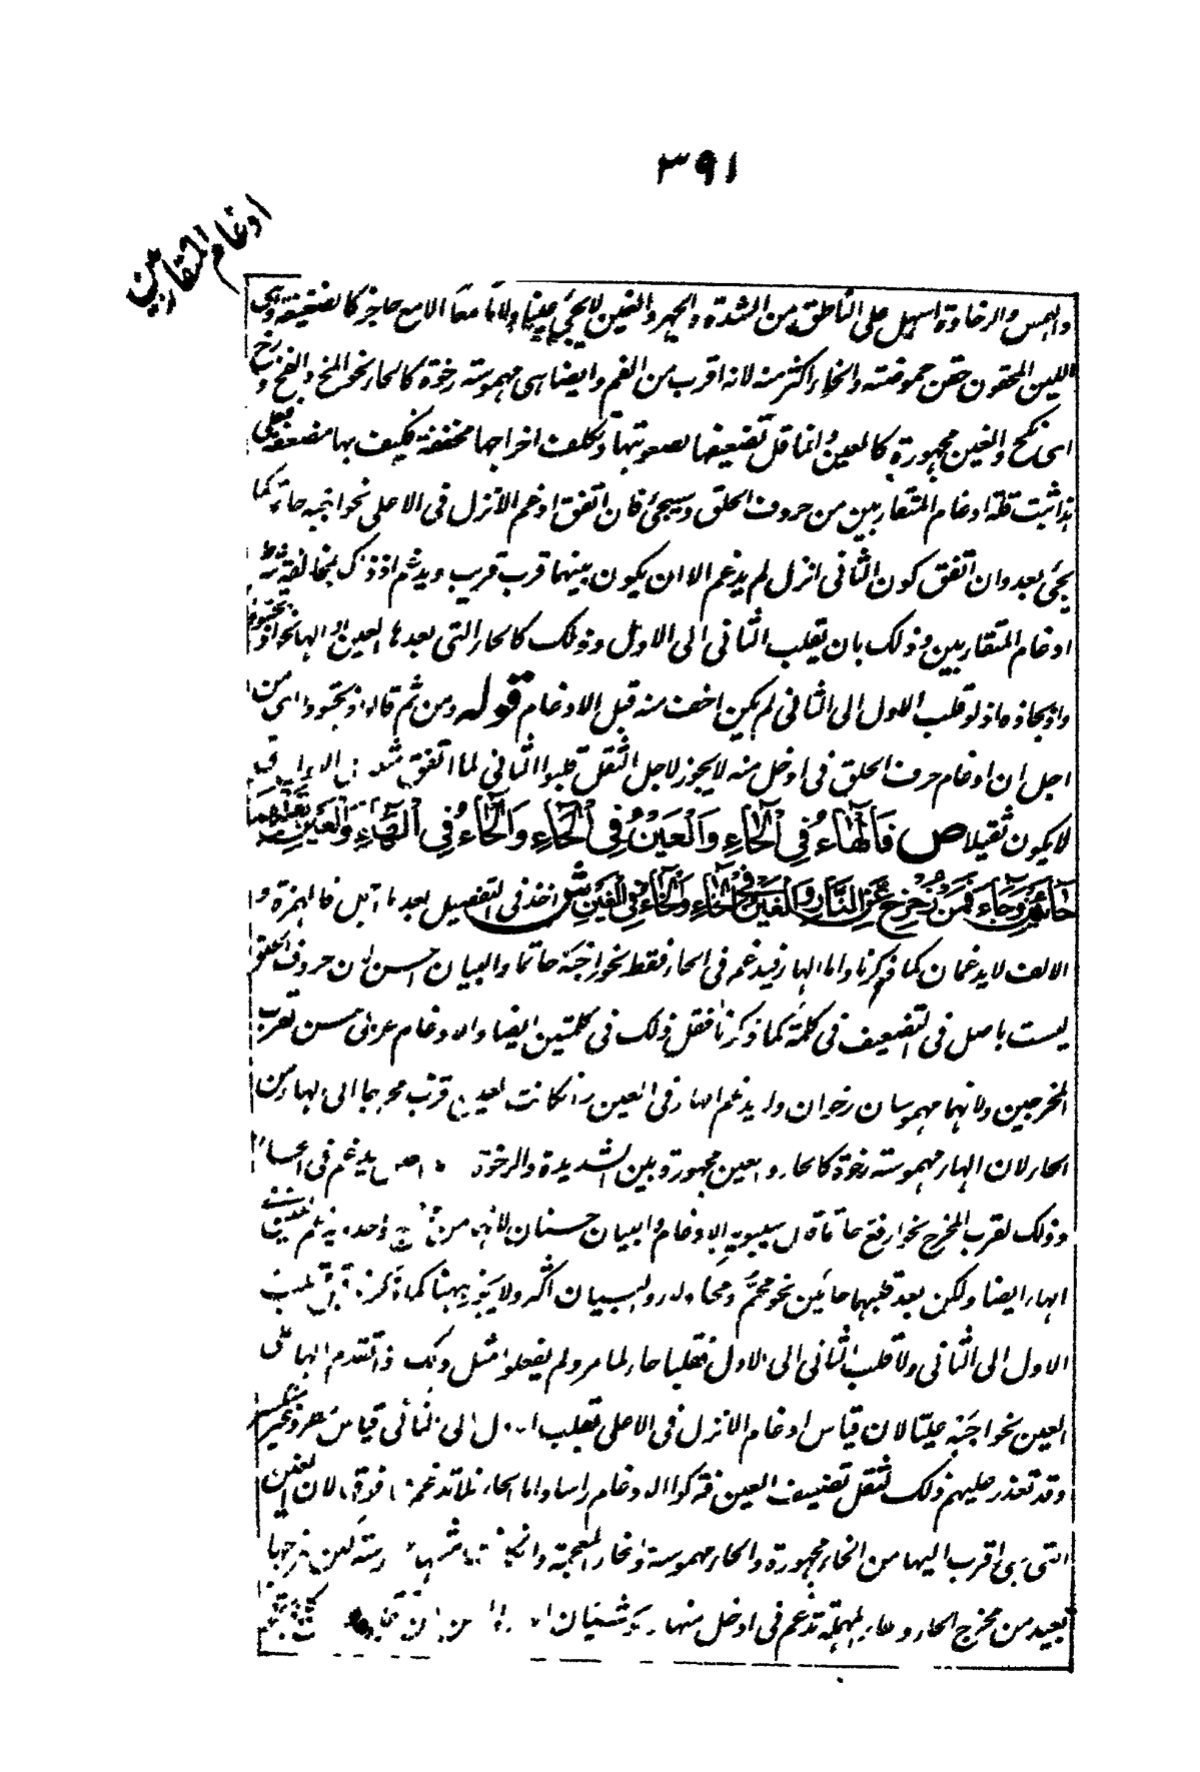 ٣٩١
ادغام المتقاربين
والهمس والرخاوة اسهل على الناطق من الشدة والجهر والغين لا يجئ عينا ولاما معا الا مع حاجز كالضغيغة وهى
اللبن المحقون حتى حموضته والخاء اكثر منه لانه اقرب من الفم وايضا هى مهموسته رخوة كالحاء نحو المخ والفخ و رخ
اى نكح والغين مجهورة كالعين وانما قل تضعيفها لصعوبتها وتكلف اخراجها مخففة فكيف بها مضعفة فعلى
هذا ثبت قلة ادغام المتقاربين من حروف الحلق وسيجئ فان اتفق ادغم الانزل فى الاعلى نحو اجبه حاتما كما
يجئ بعد وان اتفق كون الثانى انزل لم يدغم الا ان يكون بينهما قرب قريب ويدغم اذ ذاك بمخالفة شرط
ادغام المتقاربين وذلك بان يقلب الثانى الى الاول وذلك كالحاء التى بعدها العين او الهاء نحو اذبحتودا
واذبحاذه اذ لو قلب الاول الى الثانى لم يكن اخف منه قبل الادغام قوله ومن ثم قالوا اذبحتودا اى من
اجل ان ادغام حرف الحلق فى ادخل منه لا يجوز لاجل الثقل قلبوا الثانى لما اتفق مثل
لا يكون ثقيلا ص فَالْهَاءُ فِي الْحَاءِ وَالْعَيْنُ فِي الْحَاءِ وَالْحَاءُ فِي الْهَاءِ وَالْعَيْنِ بِقَلْبِهِمَا
حَائَيْنِ وَجَاءَ فَمَنْ زُحْزِحَ عَنِ النَّارِ وَالْغَيْنُ فِي الْخَاءِ وَالْخَاءُ فِي الْغَيْنِ ش اخذ فى التفصيل بعد ما اجمل فالهمزة و
الالف لا يدغمان كما ذكرنا واما الهاء فيدغم فى الحاء فقط نحو اجبه حاتما والبيان احسن لان حروف الحلق
ليست باصل فى التضعيف فى كلمة كما ذكرنا فقل ذلك فى كلمتين ايضا والادغام عربى حسن لقرب
المخرجين ولانهما مهموسان رخوان ولم يدغم الهاء فى العين وان كانت العين اقرب مخرجا الى الهاء من
الحاء لان الهاء مهموسته رخوة كالحاء والعين مجهورة وبين الشديدة والرخوة يدغم فى الحاء
وذلك لقرب المخرج نحو ارفع حاتما قال سيبويه الادغام والبيان حسنان لانهما من مخرج واحد
الهاء ايضا ولكن بعد قلبهما حائين نحو محم ومحاولاء والبيان اكثر ولا يجوز ههنا كما ذكرنا قلب
الاول الى الثانى ولا قلب الثانى الى الاول فقلبا حاء لما مر ولم يفعلوا مثل ذلك اذا تقدم الهاء على
العين نحو اجبه عليا لان قياس ادغام الانزل فى الاعلى بقلب الاول الى الثانى قياس مطرد غير منكسر
وقد تعذر عليهم ذلك لثقل تضعيف العين فتركوا الادغام راسا واما الحاء فلا تدغم فيما فوقها لان الغين
التى هى اقرب اليها من الخاء مجهورة والحاء مهموسة والخاء المعجمة وان كانت مثلها مهموسة لكن مخرجها
بعيد من مخرج الحاء والحاء المهملة تدغم فى ادخل منها وهو شيئان